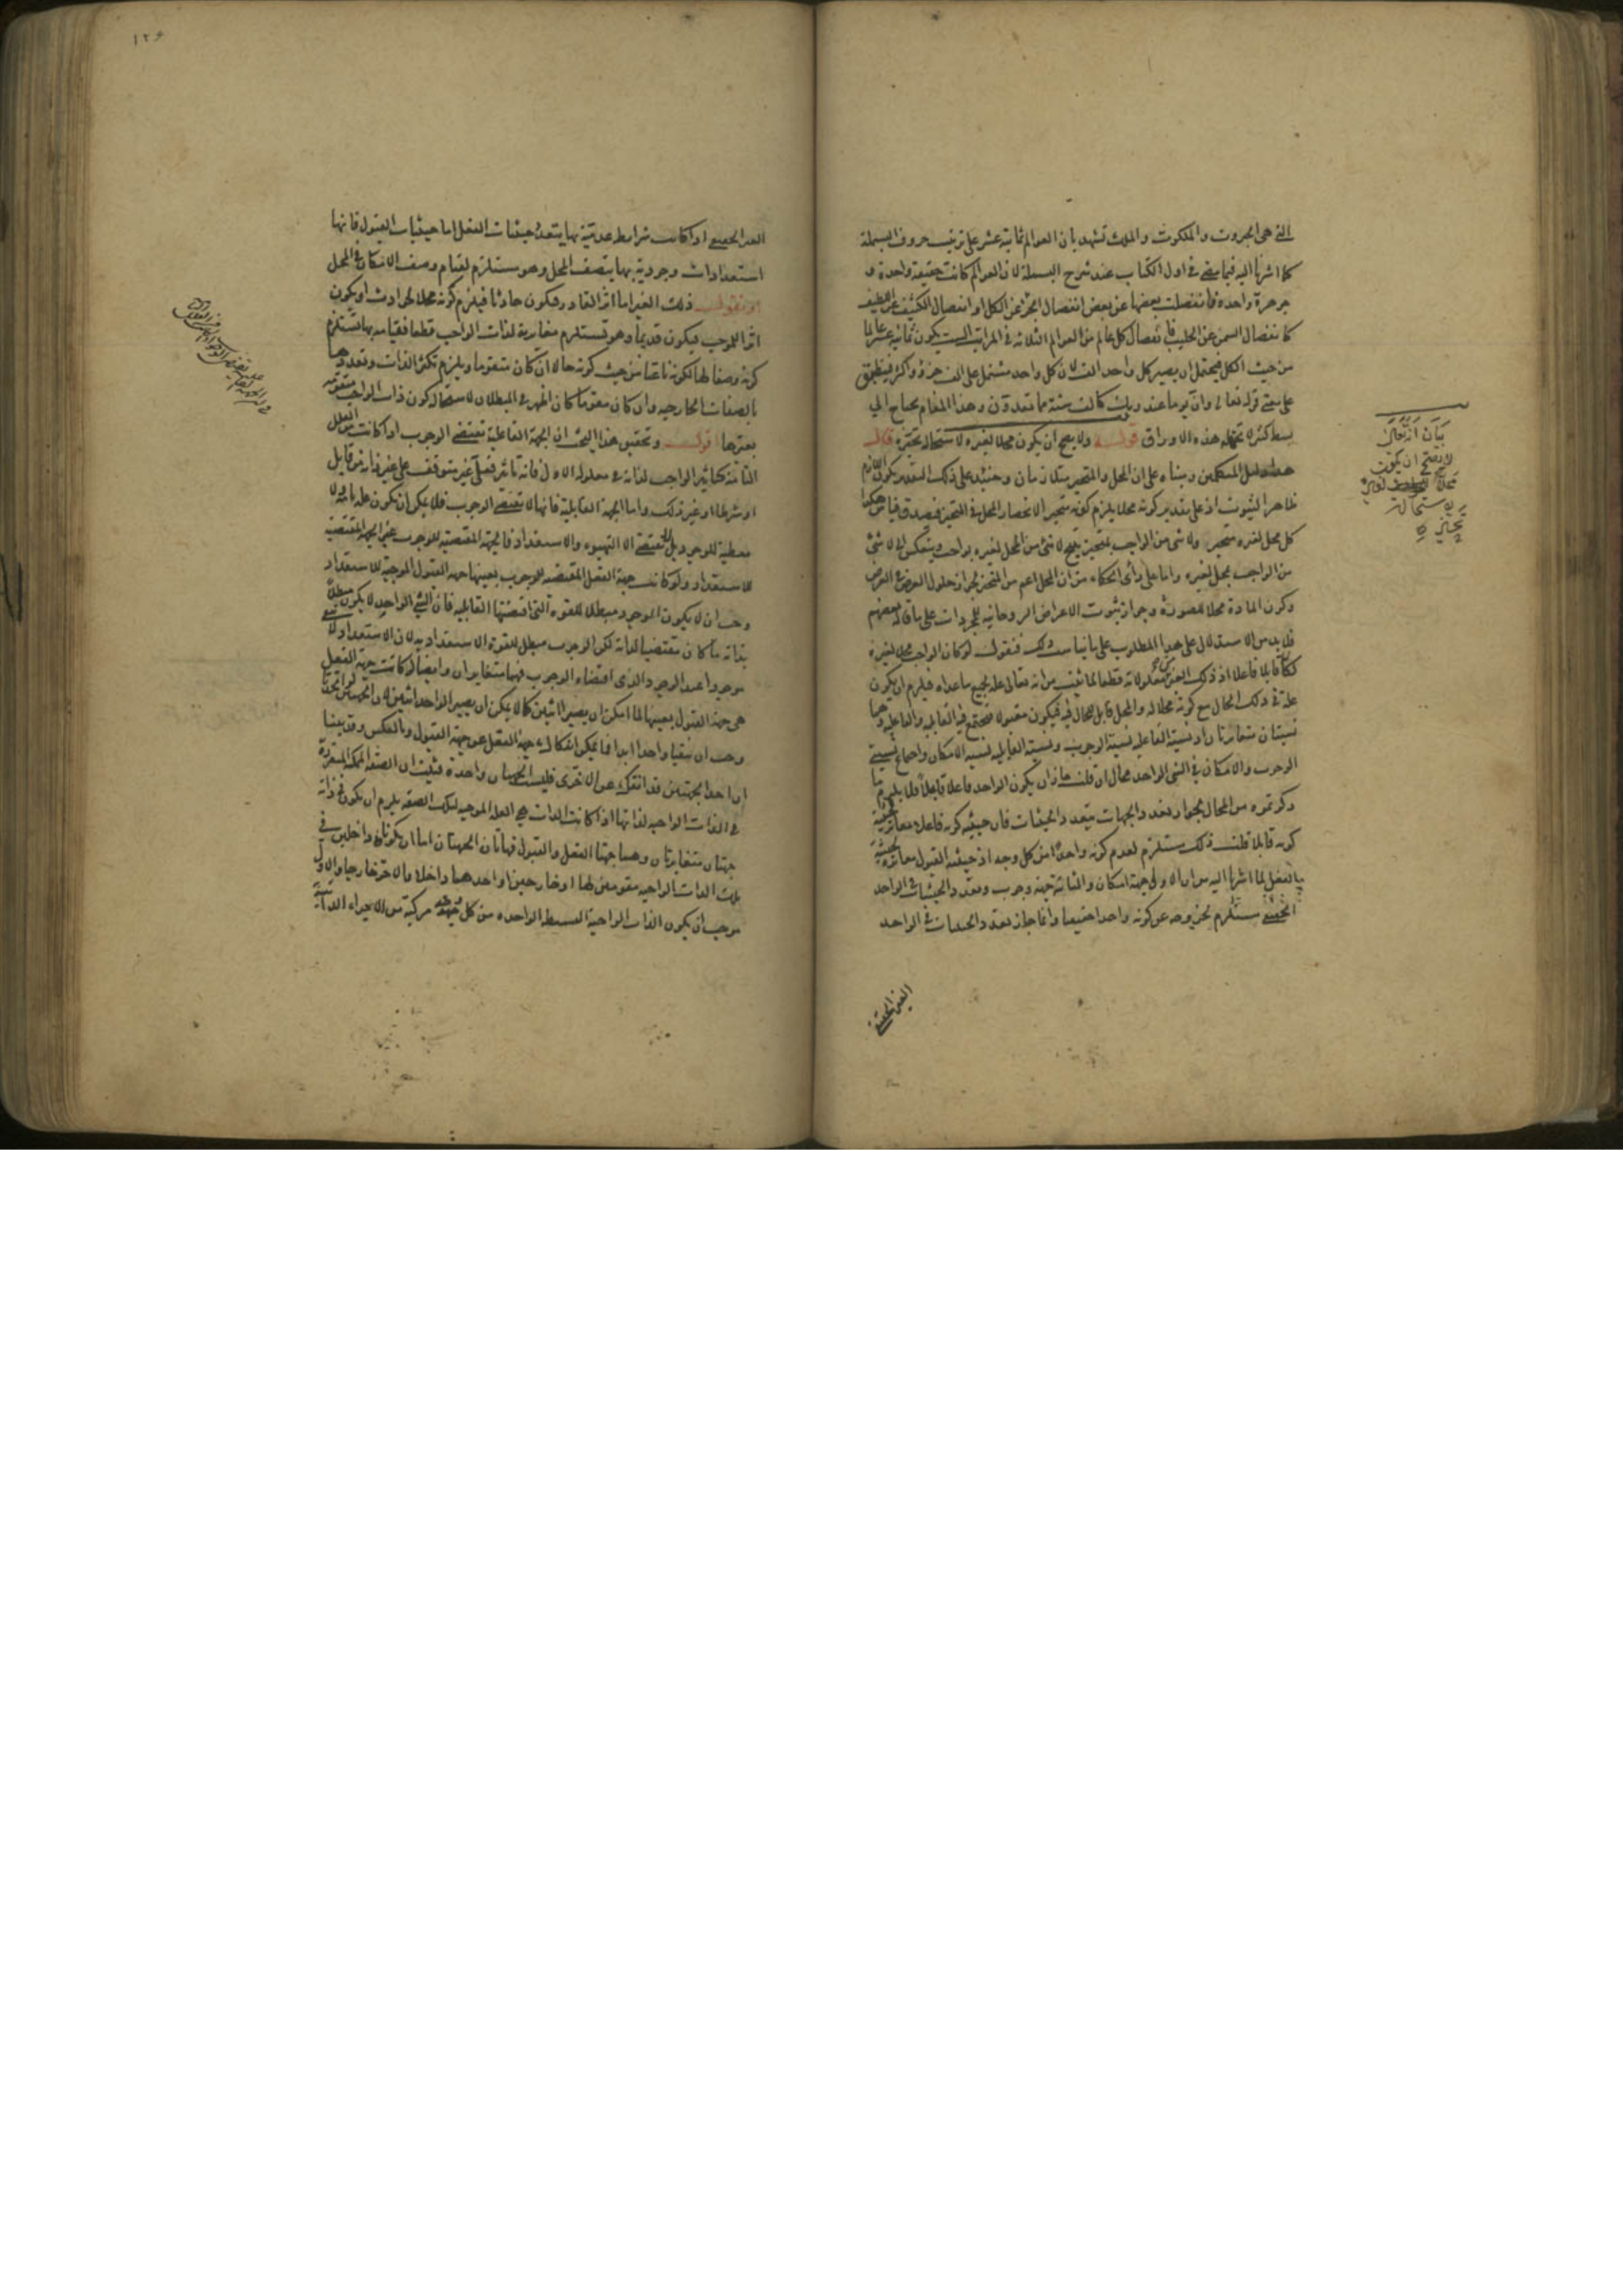 التى هى الجبروت والملكوت والملك تشهد بان العوالم ثمانية عشر على ترتيب حروف البسملة
كما اشرنا اليه فيما مضى فى اول الكتاب عند شرح البسملة لان العوالم كانت حقيقة واحدة و
جوهرة واحدة فانفصلت بعضها عن بعض انفصال الجزء عن الكل او انفصال الكثيف عن اللطيف
كانفصال السمن عن الحليب فانفصال كل عالم من العوالم الثلاثة فى المراتب الست يكون ثمانية عشر عالما
من حيث الكل فيحتمل ان يصير كل واحد الف لان كل واحد مشتمل على الف جزء واكثر فينطبق
على معنى قوله تعالى وان يوما عند ربك كالف سنة مما تعدون وهذا المقام يحتاج الى
بسط كثير لا تحمله هذه الاوراق قوله ولا يصح ان يكون محلا لغيره لاستحالة تحيزه قال
هذا دليل المتكلمين وبناه على ان المحل والمتحيز متلازمان وحينئذ على ذلك التقدير يكون اللازم
ظاهر الثبوت اذ على تقدير كونه محلا يلزم كونه متحيزا لانحصار المحل فى المتحيز فيصدق قياس هكذا
كل محل لغيره متحيز ولا شئ من الواجب بمتحيز ينتج لا شئ من المحل لغيره بواجب وينعكس الى لا شئ
من الواجب بمحل لغيره واما على رأى الحكماء من ان المحل اعم من المتحيز لجواز حلول العرض فى العرض
وكون المادة محلا للصورة وجواز ثبوت الاعراض الروحانية للمجردات على ما قاله بعضهم
فلا بد من الاستدلال على هذا المطلوب على ما يناسب ذلك فنقول لو كان الواجب محلا لغيره
لكان قابلا فاعلا اذ ذلك الغير من معلولاته قطعا لما ثبت من انه تعالى علة لجميع ما عداه فيلزم ان يكون
علة فى ذلك الحال مع كونه محلا له والمحل قابل للحال فيه فيكون مقبولا فتجتمع فيه القابلية والفاعلية وهما
نسبتان متغايرتان اذ نسبة الفاعلية نسبة الوجوب ونسبة القابلية نسبة الامكان واجتماع نسبتى
الوجوب والامكان فى الشئ الواحد محال ان قلت جاز ان يكون الواحد فاعلا قابلا ولا يلزم ما
ذكرتموه من المحال لجواز تعدد الجهات بتعدد الحيثيات فان حيثية كونه فاعلا مغايرة لحيثية
كونه قابلا قلت ذلك مستلزم لعدم كونه واحدا من كل وجه اذ حيثية القبول مغايرة لحيثية
الفعل لما اشرنا اليه من ان الاولى جهة امكان والثانية جهة وجوب وتعدد الحيثيات فى الواحد
الحقيقى مستلزم لخروجه عن كونه واحدا حقيقيا وانما جاز تعدد الحيثيات فى الواحد
الغير الحقيقى
بيان انه تعالى
لا يصح ان يكون
محلا لغيره
لاستحالة
تحيزه
١٢٤
الغير الحقيقى اذا كانت شرايط عدمية بها يتعدد حيثيات الفعل اما حيثيات القبول فانها
استعدادات وجودية بها يتصف المحل وهو مستلزم لقيام وصف الامكان فى المحل
او نقول ذلك الغير اما اثر القادر فيكون حادثا فيلزم كونه محلا للحوادث او يكون
اثر الموجب فيكون قديما وهو مستلزم مغايرته لذات الواجب قطعا فقيامه بها يستلزم
كونه وصفا لها لكونه ناعتا من حيث كونه حالا ان كان متقوما ويلزم تكثر الذات وتعددها
بالصفات الخارجية وان كان مقوما كان اظهر فى البطلان لاستحالة كون ذات الواجب متقومة
بغيرها قوله وتحقيق هذا البحث ان الجهة الفاعلية تقتضى الوجوب اذا كانت العلل
التامة كتأثير الواجب لذاته فى معلوله الاول فانه تأثير فعلى غير متوقف على غير ذاته من قابل
او شرط او غير ذلك واما الجهة القابلية فانها لا تقتضى الوجوب فلا يمكن ان يكون علة تامة ولا
معطية للوجود بل لا تقتضى الا التهيوء والاستعداد فالجهة المقتضية للوجوب غير الجهة المقتضية
للاستعداد ولو كانت جهة الفعل المقتضية للوجوب بعينها جهة القبول الموجبة للاستعداد
وجب ان لا يكون الوجود مبطلا للقوة التى اقتضتها القابلية فان الشئ الواحد لا يكون مبطلا
بذاته ما كان مقتضيا لذاته لكن الوجوب مبطل للقوة الاستعدادية لان الاستعداد لا يبقى
موجودا عند الوجود والذى اقتضاه الوجوب فهما متغايران وايضا لو كانت جهة الفعل
هى جهة القبول بعينها لما امكن ان يصيرا اثنين كما لا يمكن ان يصير الواحد اثنين لان الجهتين لو اتحدتا
وجب ان يبقيا واحدا ابدا فما يمكن انفكاك جهة الفعل عن جهة القبول وبالعكس وقد بينا
ان احد الجهتين قد انفك عن الاخرى فليست الجهتان واحدة فثبت ان الصفة الممكنة المتقررة
فى الذات الواجبة لذاتها اذا كانت الذات هى العلة الموجبة لتلك الصفة يلزم ان يكون فى ذاته
جهتان متغايرتان وهما جهتا الفعل والقبول فهاتان الجهتان اما ان يكونا داخلين فى
تلك الذات الواجبة مقومين لها او خارجين او احدهما داخلا والاخر خارجا والاول
موجب ان يكون الذات الواجبة البسيطة الواحدة من كل جهة مركبة من الاجزاء الذاتية